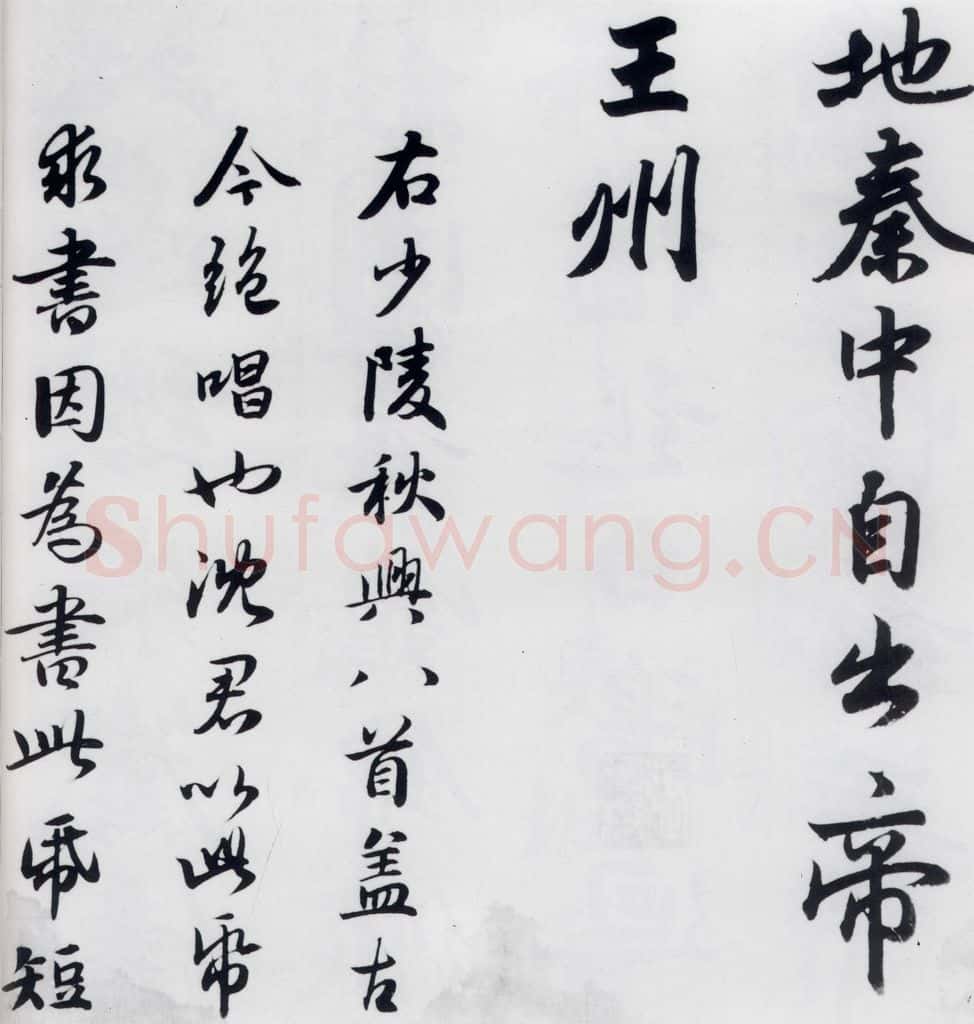 地秦中自出帝
王州
右少陵秋興八首盖古
今絶唱也沈君以此帋
求書因為書此帋短
Shufawang.CN